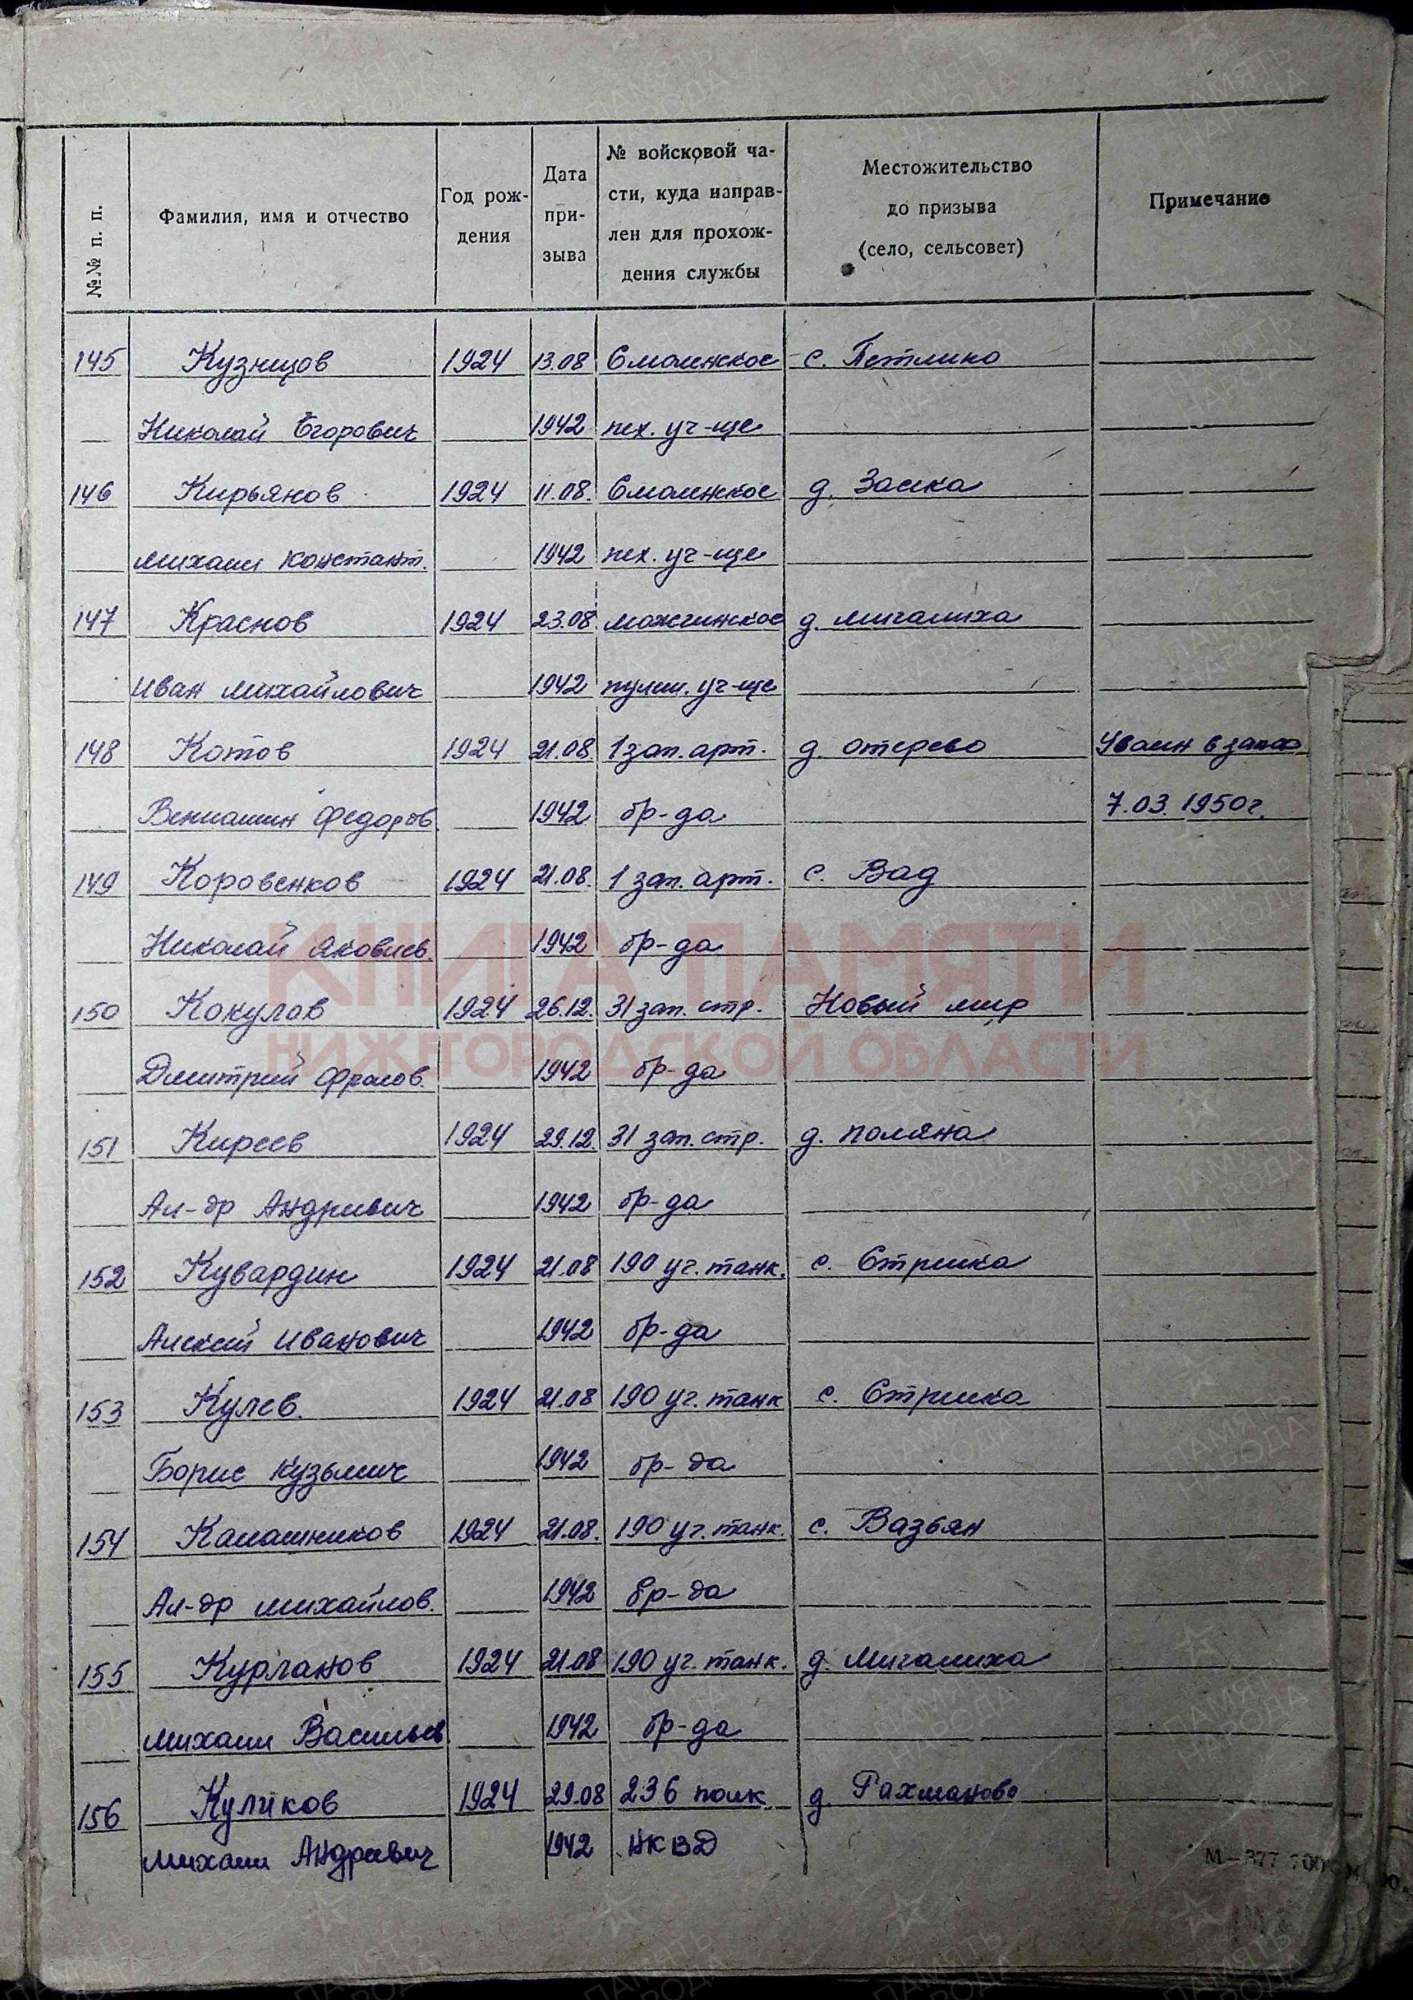 №№ п. п.
Фамилия, имя и отчество
Год рож-
дения
Дата
при-
зыва
№ войсковой ча-
сти, куда направ-
лен для прохож-
дения службы
Местожительство
до призыва
(село, сельсовет)
Примечание
145 Кузнецов 1924 13.08 Смоленское с. Петлино
Николай Егорович 1942 пех. уч-ще
146 Кирьянов 1924 11.08. Смоленское д. Засека
Михаил Констант. 1942 пех. уч-ще
147 Краснов 1924 23.08 Можгинское д. Мигалиха
Иван Михайлович 1942 пулем. уч-ще
148 Котов 1924 21.08 1 зап. арт. д. Отерево Уволен в запас
Вениамин Федоров. 1942 бр-да 7.03.1950г.
149 Коровенков 1924 21.08. 1 зап. арт. с. Вад
Николай Яковлев. 1942 бр-да
150 Кокулов 1924 26.12. 31 зап. стр. Новый мир
Дмитрий Фролов. 1942 бр-да
151 Киреев 1924 29.12. 31 зап. стр. д. Поляна
Ал-др Андреевич 1942 бр-да
152 Кувардин 1924 21.08 190 уч. танк. с. Стрелка
Алексей Иванович 1942 бр-да
153 Кулев. 1924 21.08 190 уч. танк с. Стрелка
Борис Кузьмич 1942 бр-да
154 Калашников 1924 21.08. 190 уч. танк. с. Вазьян
Ал-др Михайлов. 1942 бр-да
155 Курганов 1924 21.08 190 уч. танк. д. Мигалиха
Михаил Васильев 1942 бр-да
156 Куликов 1924 29.08 236 полк д. Рахманово
Михаил Андреевич 1942 НКВД
КНИГА ПАМЯТИ
НИЖЕГОРОДСКОЙ ОБЛАСТИ
ПАМЯТЬ
НАРОДА
М-377